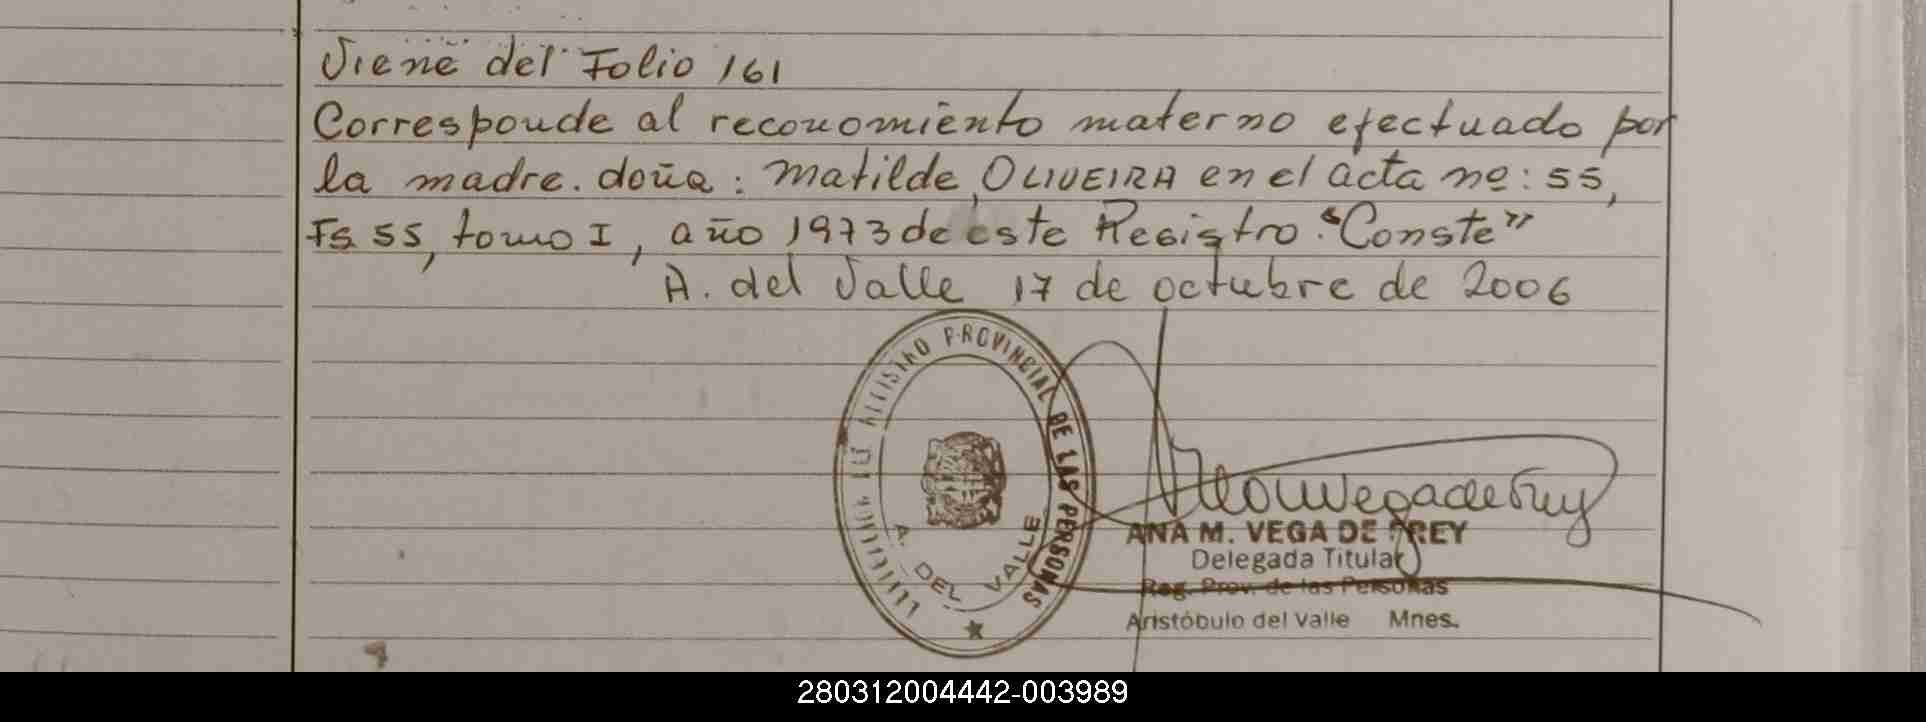 Viene del Folio 161
Corresponde al reconomiento materno efectuado por
la madre. doña: Matilde, OLIVEIRA en el acta nº: 55,
Fs 55, tomo I, año 1973 de este Registro. "Conste"
A. del Valle 17 de octubre de 2006
REGISTRO PROVINCIAL DE LAS PERSONAS
A. DEL VALLE
ANA M. VEGA DE FREY
Delegada Titular
Reg. Prov. de las Personas
Aristóbulo del Valle Mnes.
280312004442-003989